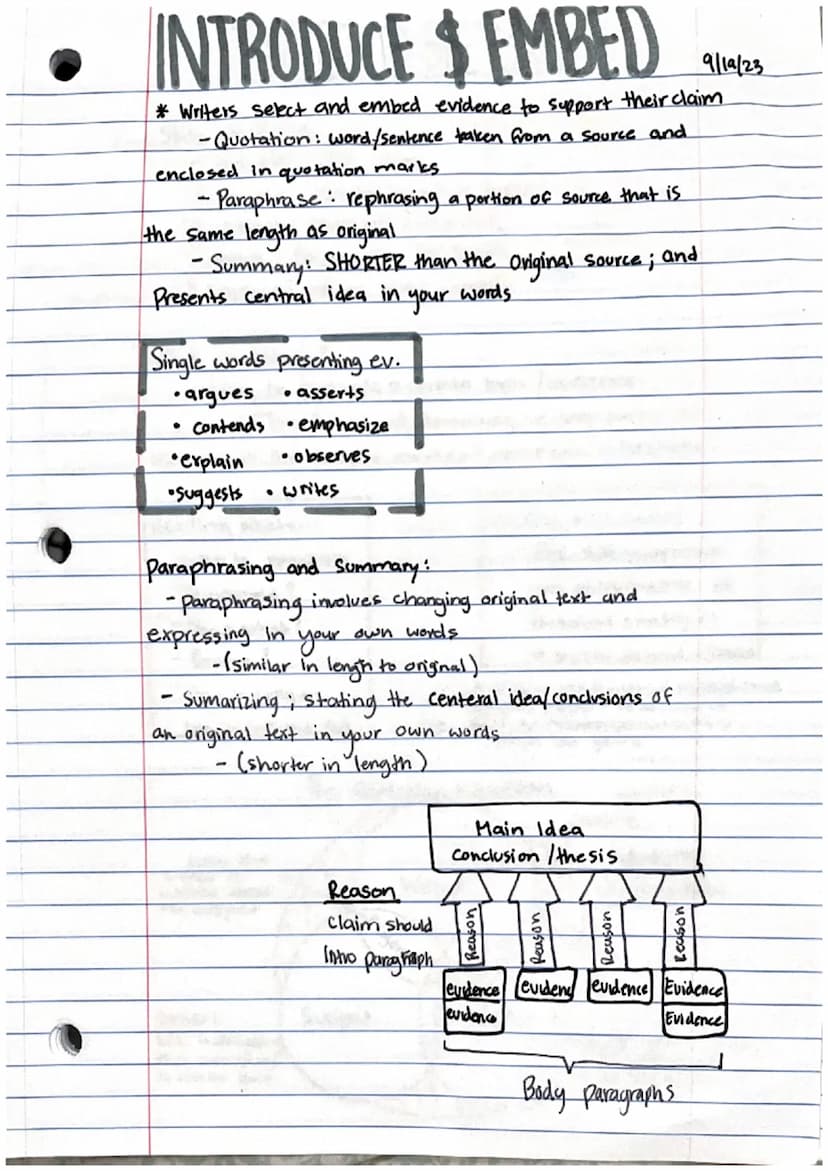 INTRODUCE $ EMBED
9/19/23
* Writers select and embed evidence to support their claim
- Quotation: word/sentence taken from a source and
enclosed in quotation marks
- Paraphrase: rephrasing a portion of source that is
the same length as original
- Summary: SHORTER than the original source; and
Presents central idea in your words
Single words presenting ev.
• argues • asserts
• contends • emphasize
• explain • observes
• suggests • writes
Paraphrasing and Summary:
- Paraphrasing involves changing original text and
expressing in your own words
- (similar in length to orignal)
- Sumarizing; stating the centeral idea/conclusions of
an original text in your own words
- (shorter in length)
Main Idea
Conclusion/thesis
Reason
Claim should
Intro paragraph
Reason Reason Reason Reason
evidence evidenc evidence Evidence
evidence Evidence
Body paragraphs